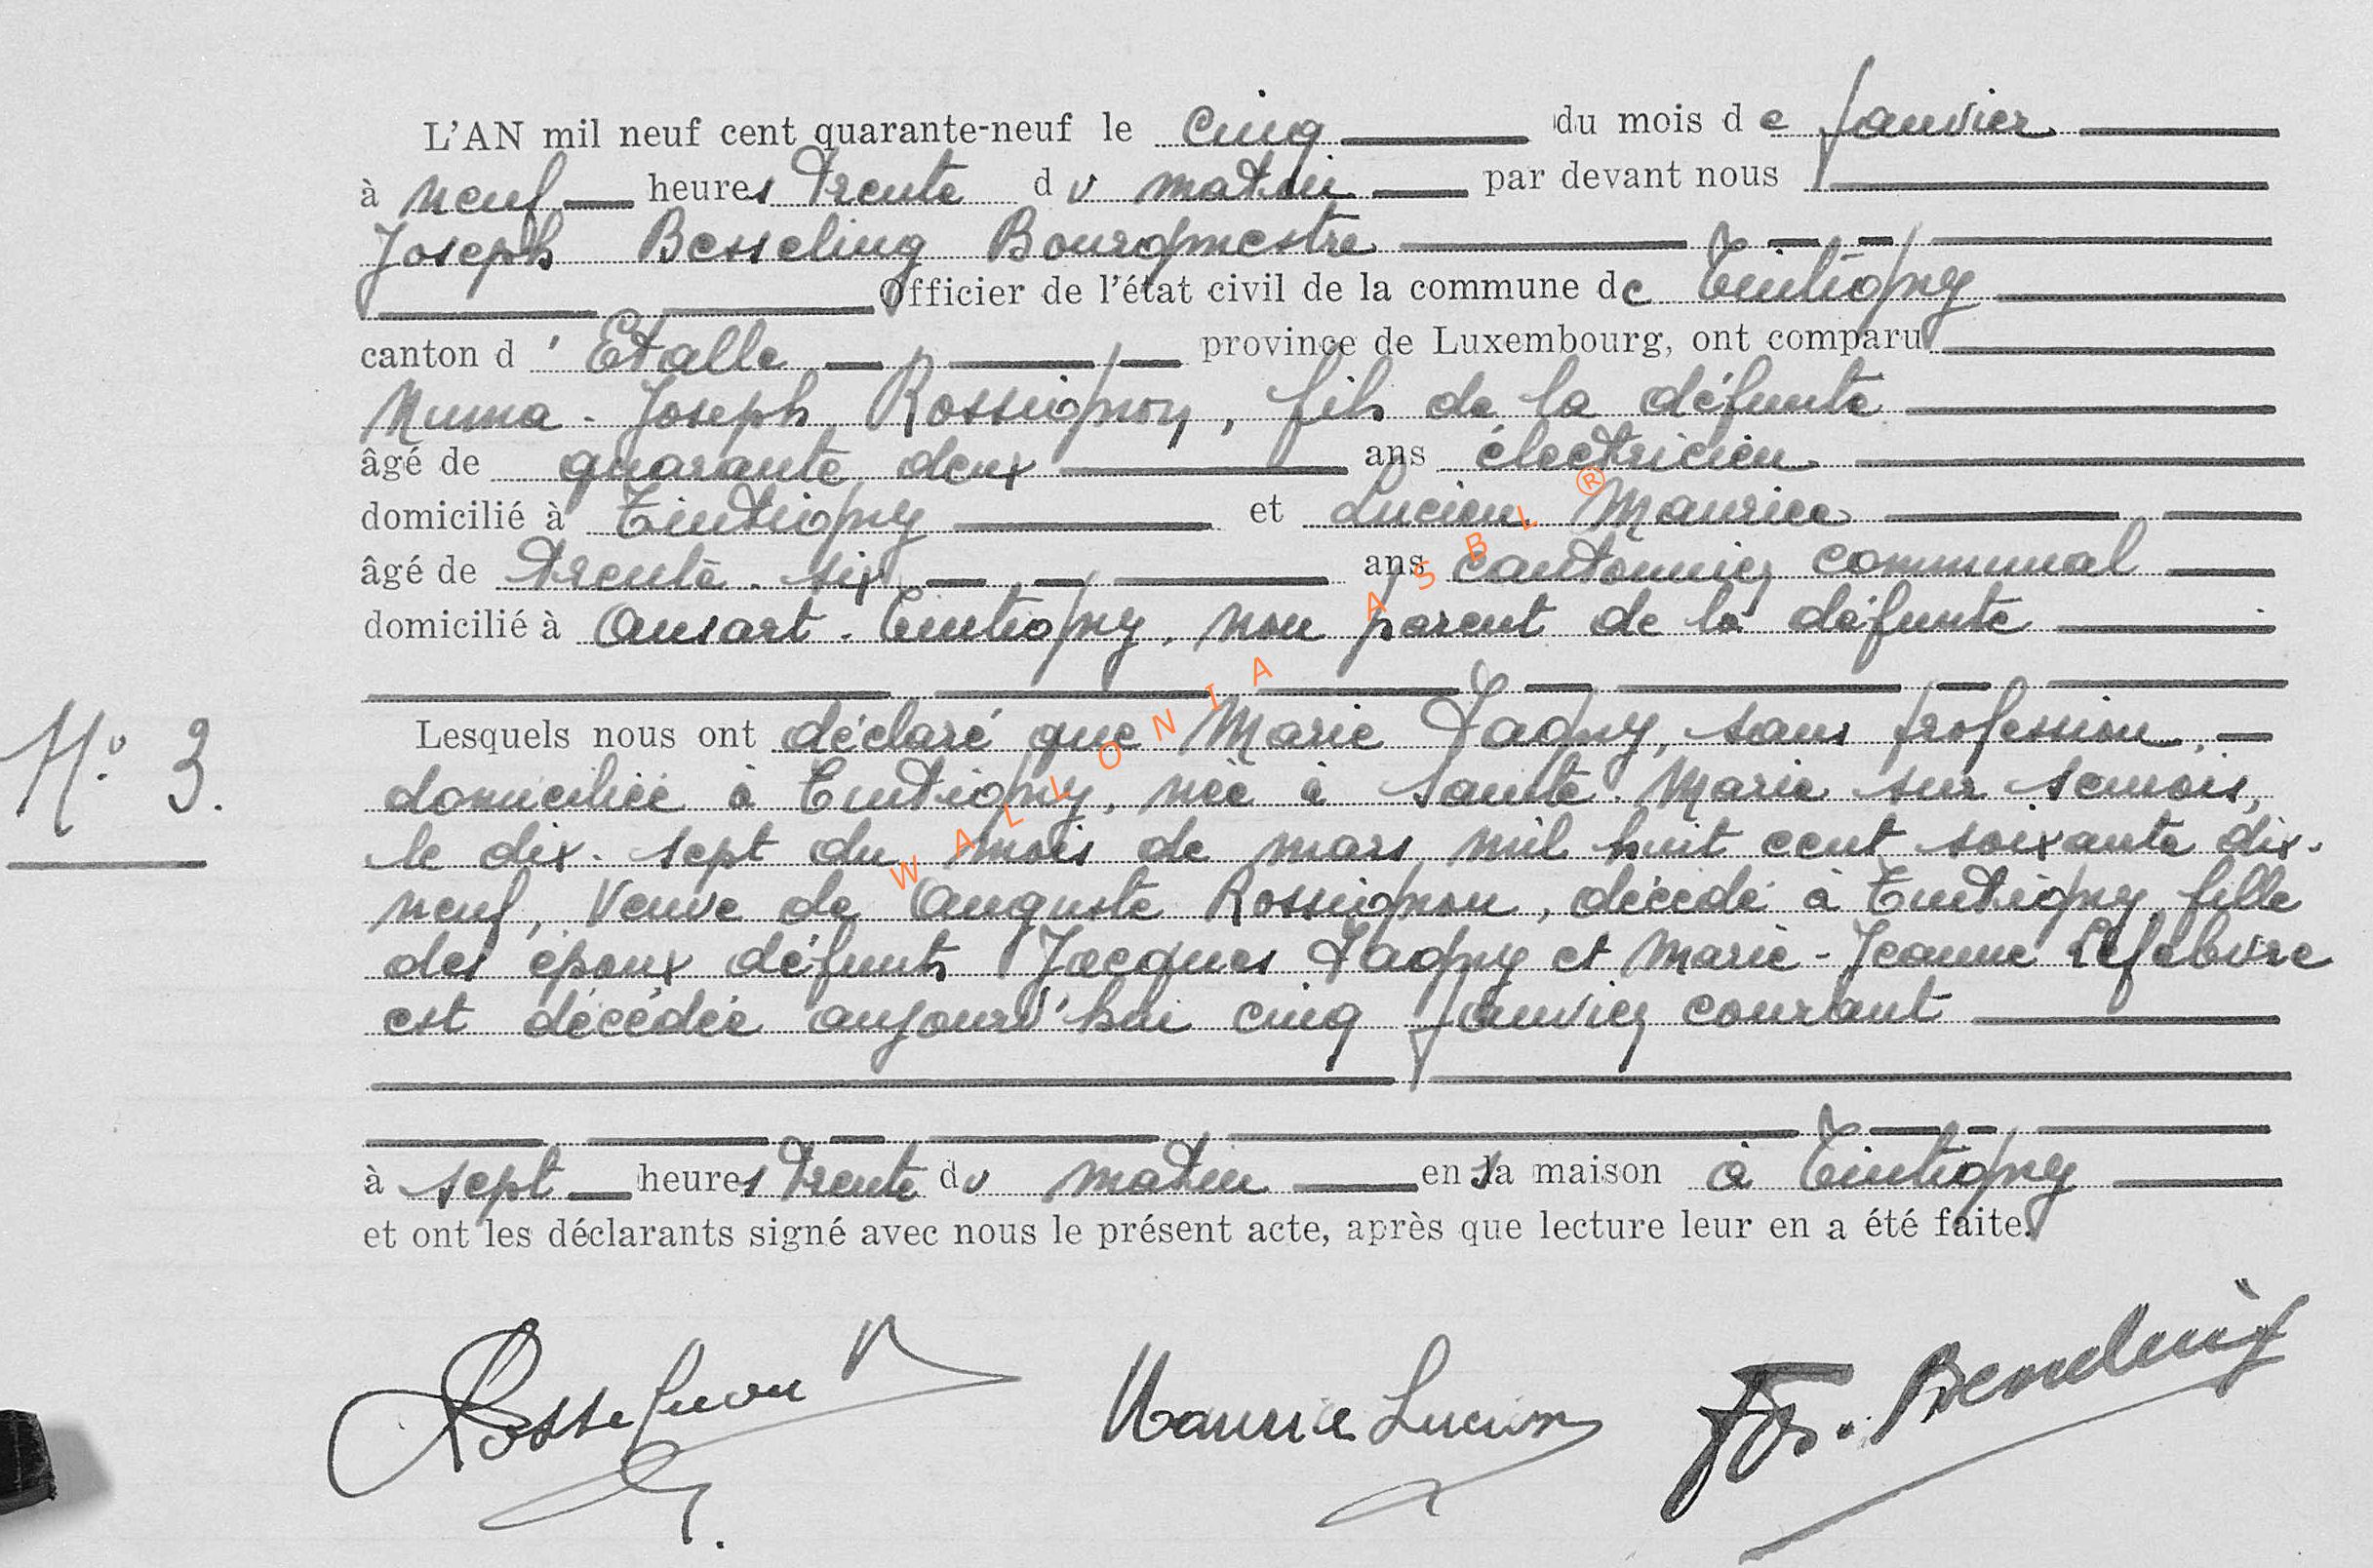 L'AN mil neuf cent quarante-neuf le cinq du mois de Janvier
à neuf heures trente du matin par devant nous
Joseph Besseling Bourgmestre
Officier de l'état civil de la commune de Tintigny
canton d'Etalle province de Luxembourg, ont comparu
Numa-Joseph Rossignon, fils de la défunte
âgé de quarante deux ans électricien
domicilié à Tintigny et Lucien Maurice
âgé de trente-six ans cantonnier communal
domicilié à Ansart-Tintigny, non parent de la défunte
N° 3.
Lesquels nous ont déclaré que Marie Jagny, sans profession,
domiciliée à Tintigny, née à Sainte-Marie sur Semois,
le dix-sept du mois de mars mil huit cent soixante dix-
neuf, Veuve de Auguste Rossignon, décédé à Tintigny, fille
des époux défunts Jacques Jagny et Marie-Jeanne Lefebvre
est décédée aujourd'hui cinq Janvier courant
à sept heures trente du matin en sa maison à Tintigny
et ont les déclarants signé avec nous le présent acte, après que lecture leur en a été faite.
Rossignon N Maurice Lucien Jos. Besseling
WALLONIA ASBL ®